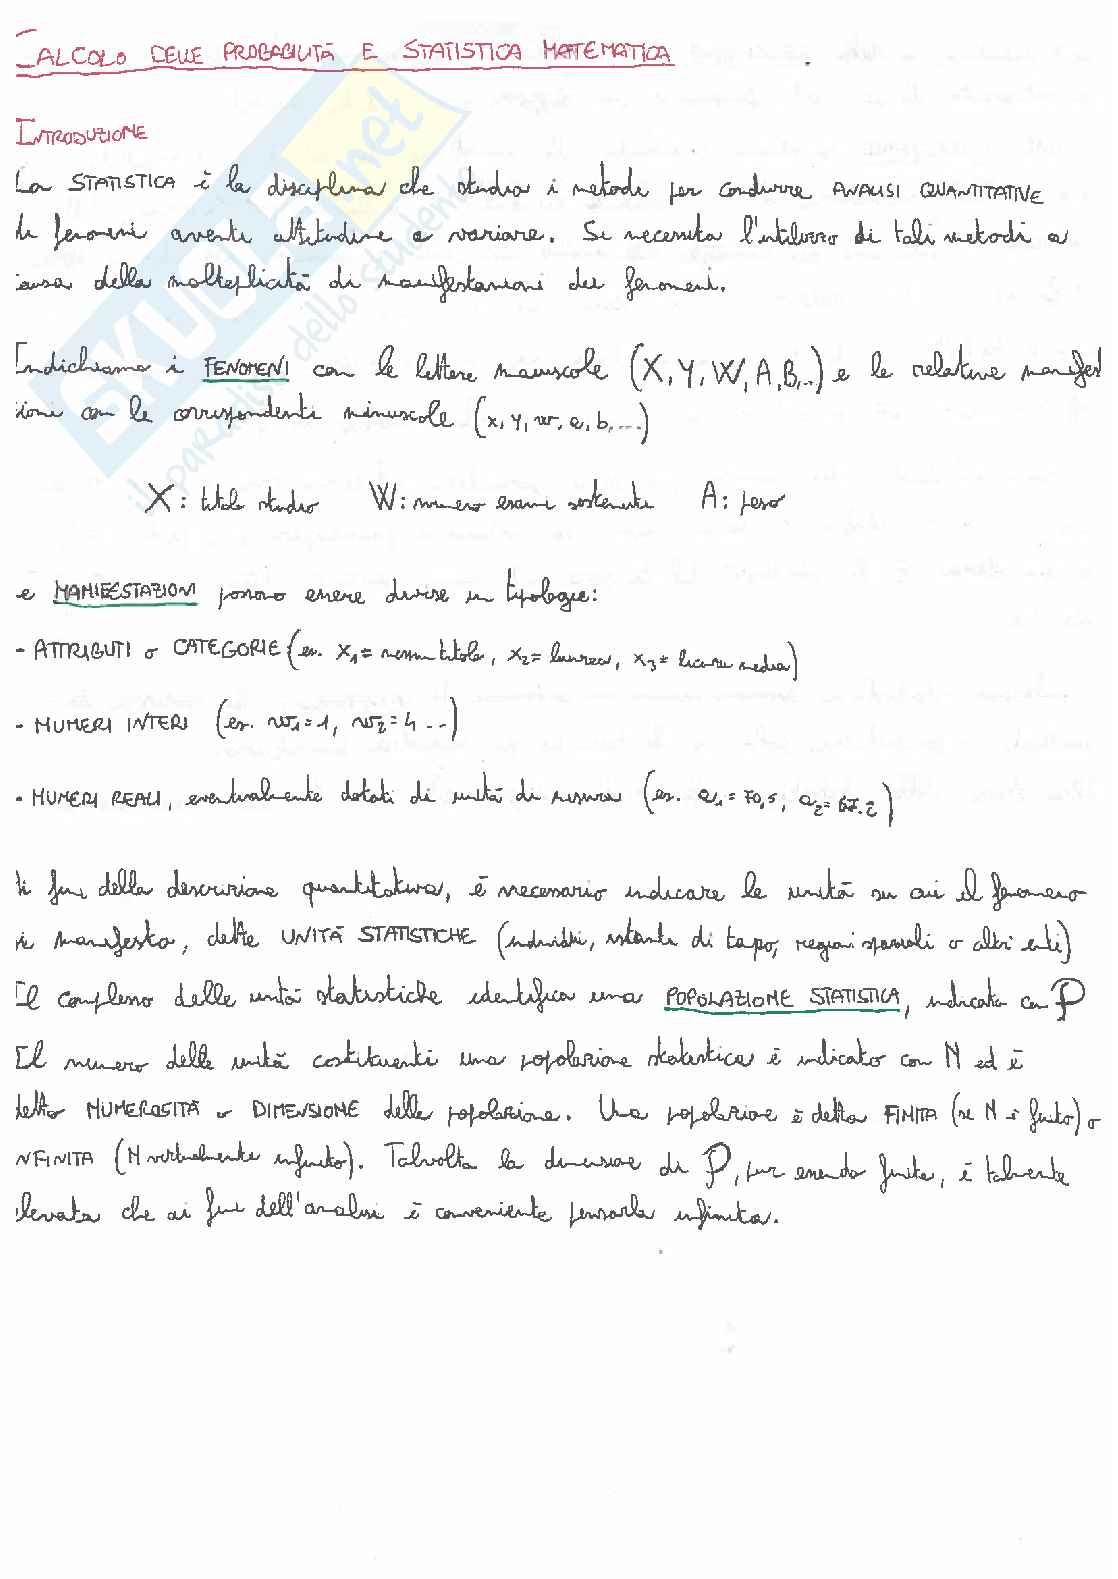 CALCOLO DELLE PROBABILITÀ E STATISTICA MATEMATICA
INTRODUZIONE
La STATISTICA è la disciplina che studia i metodi per condurre ANALISI QUANTITATIVE
di fenomeni aventi attitudine a variare. Si necessita l'utilizzo di tali metodi a
causa della molteplicità di manifestazioni dei fenomeni.
Indichiamo i FENOMENI con le lettere maiuscole (X, Y, W, A, B,..) e le relative manifest
zioni con le corrispondenti minuscole (x, y, w, a, b, ....)
X: titolo studio W: numero esami sostenuti A: peso
e MANIFESTAZIONI possono essere divise in tipologie:
- ATTRIBUTI o CATEGORIE (es. x1= nessun titolo, x2= laurea, x3= licenza media)
- NUMERI INTERI (es. w1=1, w2=4 ...)
- NUMERI REALI, eventualmente dotati di unità di misura (es. a1=70,5, a2=67.2)
i fini della descrizione quantitativa, è necessario indicare le unità su cui il fenomeno
si manifesta, dette UNITÀ STATISTICHE (individui, istanti di tempo, regioni spaziali o altri enti)
Il complesso delle unità statistiche identifica una POPOLAZIONE STATISTICA, indicata con P
Il numero delle unità costituenti una popolazione statistica è indicato con N ed è
detto NUMEROSITÀ o DIMENSIONE della popolazione. Una popolazione è detta FINITA (se N è finito) o
INFINITA (N virtualmente infinito). Talvolta la dimensione di P, pur essendo finita, è talmente
elevata che ai fini dell'analisi è conveniente pensarla infinita.
SKUOLA.net
il paradiso dello studente